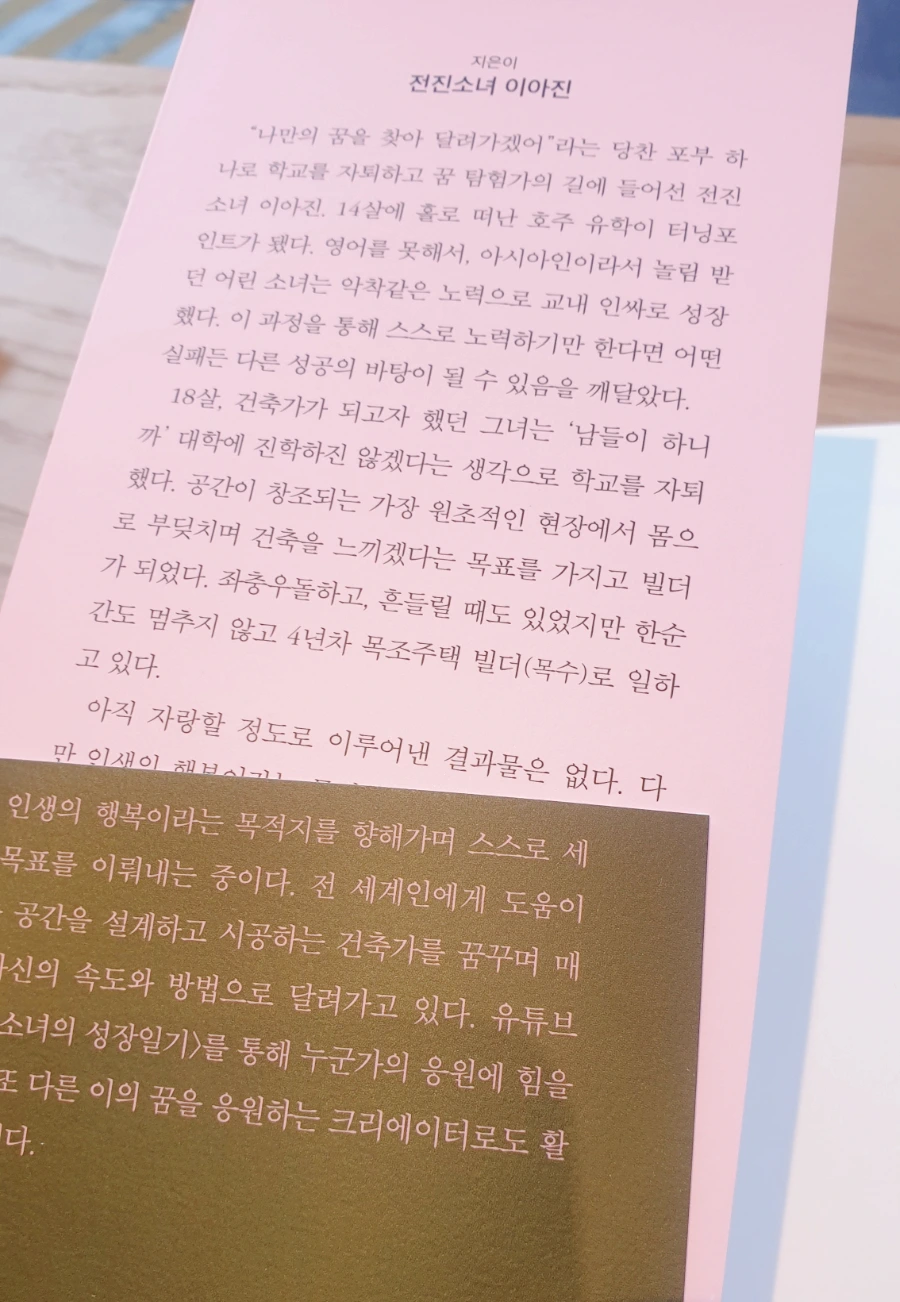 지은이
전진소녀 이아진
"나만의 꿈을 찾아 달려가겠어"라는 당찬 포부 하
나로 학교를 자퇴하고 꿈 탐험가의 길에 들어선 전진
소녀 이아진. 14살에 홀로 떠난 호주 유학이 터닝포
인트가 됐다. 영어를 못해서, 아시아인이라서 놀림 받
던 어린 소녀는 악착같은 노력으로 교내 인싸로 성장
했다. 이 과정을 통해 스스로 노력하기만 한다면 어떤
실패든 다른 성공의 바탕이 될 수 있음을 깨달았다.
18살, 건축가가 되고자 했던 그녀는 '남들이 하니
까' 대학에 진학하진 않겠다는 생각으로 학교를 자퇴
했다. 공간이 창조되는 가장 원초적인 현장에서 몸으
로 부딪치며 건축을 느끼겠다는 목표를 가지고 빌더
가 되었다. 좌충우돌하고, 흔들릴 때도 있었지만 한순
간도 멈추지 않고 4년차 목조주택 빌더(목수)로 일하
고 있다.
아직 자랑할 정도로 이루어낸 결과물은 없다. 다
만 인생의 행복이라는
인생의 행복이라는 목적지를 향해가며 스스로 세
목표를 이뤄내는 중이다. 전 세계인에게 도움이
공간을 설계하고 시공하는 건축가를 꿈꾸며 매
자신의 속도와 방법으로 달려가고 있다. 유튜브
소녀의 성장일기〉를 통해 누군가의 응원에 힘을
또 다른 이의 꿈을 응원하는 크리에이터로도 활
다.